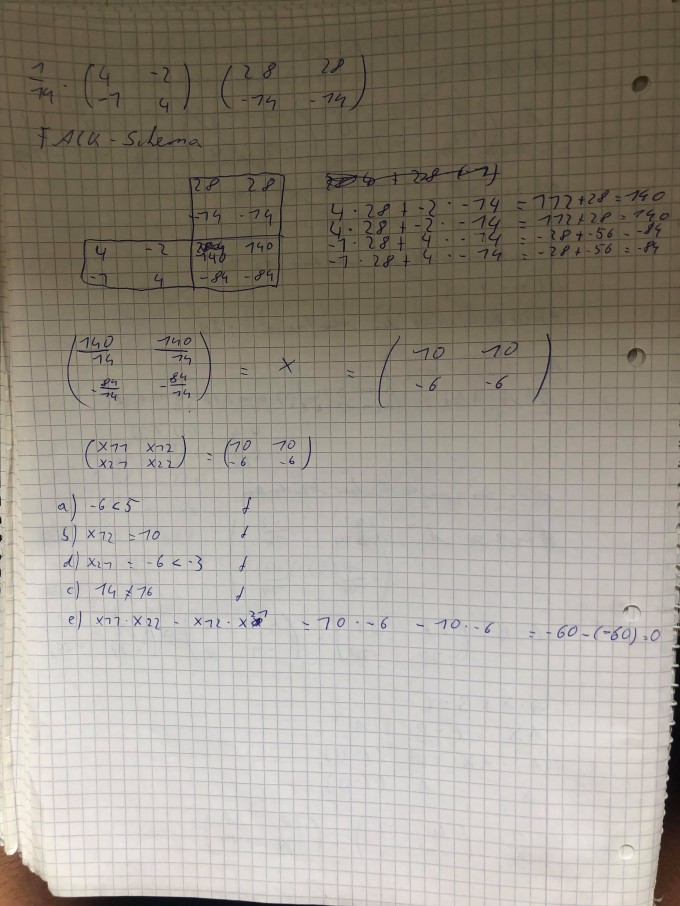 1/14 · (4 -2 -1 4) (28 28 -14 -14)
FALK-Schema
28 28
-14 -14
4 -2 140 140
-1 4 -84 -84
4 · 28 + -2 · -14 = 112 + 28 = 140
4 · 28 + -2 · -14 = 112 + 28 = 140
-1 · 28 + 4 · -14 = -28 + -56 = -84
-1 · 28 + 4 · -14 = -28 + -56 = -84
(140/14 140/14 -84/14 -84/14) = X = (10 10 -6 -6)
(x11 x12 x21 x22) = (10 10 -6 -6)
a) -6 < 5 f
b) x12 = 10 f
d) x21 = -6 < -3 f
c) 14 ≠ 16 f
e) x11 · x22 - x12 · x21 = 10 · -6 - 10 · -6 = -60 - (-60) = 0